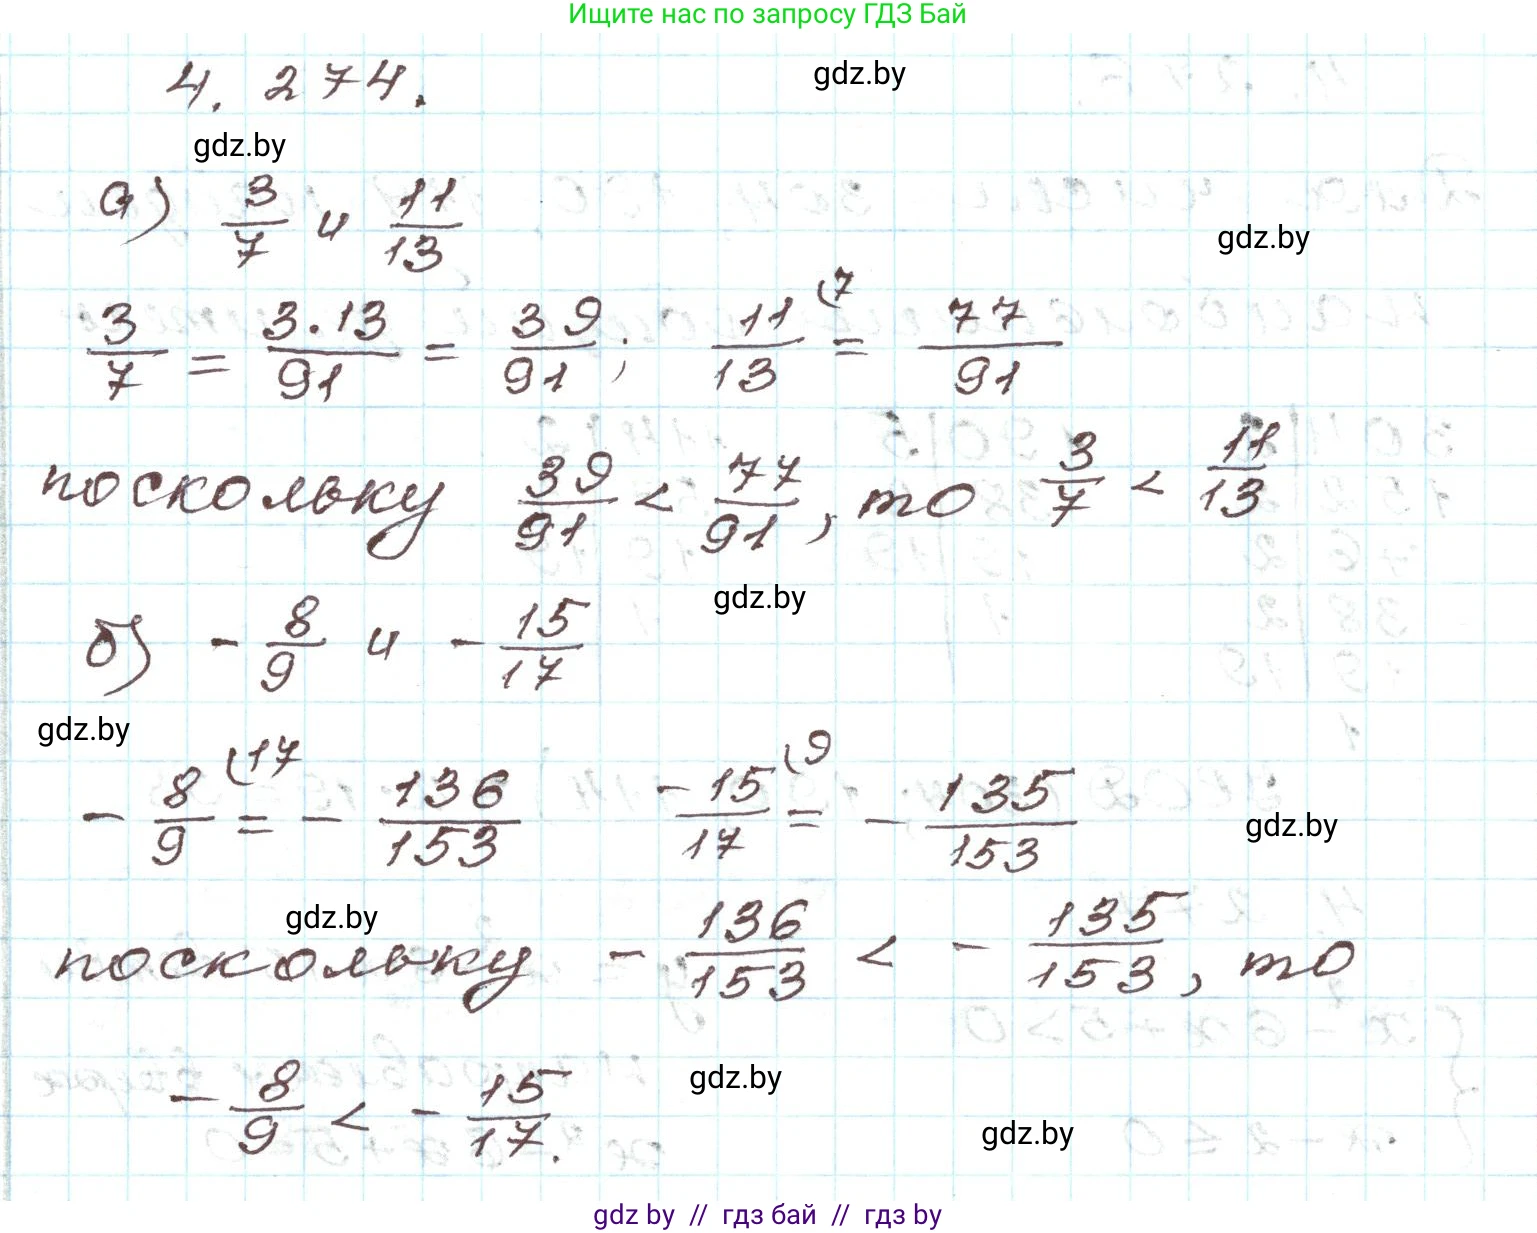 Ищите нас по запросу ГДЗ Бай
4. 274.
gdz.by
gdz.by
а) 3/7 и 11/13
gdz.by
3/7 = 3·13/91 = 39/91; 11/13 (7 = 77/91
поскольку 39/91 < 77/91, то 3/7 < 11/13
gdz.by
б) - 8/9 и - 15/17
gdz.by
- 8/9 (17 = - 136/153 -15/17 (9 = - 135/153
gdz.by
gdz.by
поскольку - 136/153 < - 135/153, то
gdz.by
- 8/9 < - 15/17.
gdz.by
gdz by // гдз бай // гдз by